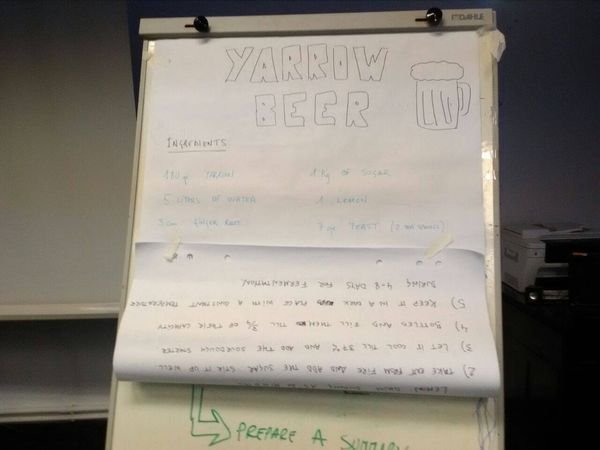 DAHLE
YARROW
BEER
INGREDIENTS
YARROW 1 Kg OF SUGAR
5 LITERS OF WATER 1 LEMON
GINGER ROOT 7 gr YEAST
LEMON
2) TAKE OUT FROM FIRE AND ADD THE SUGAR STIR IT UP WELL
3) LET IT COOL TILL 37°C AND ADD THE SOURDOUGH STARTER
4) BOTTLES AND FILL THEM TILL 3/4 OF THEIR CAPACITY
5) KEEP IT IN A DARK PLACE WITH A CONSTANT TEMPERATURE
DURING 4-8 DAYS FOR FERMENTATION
PREPARE A SUMMARY